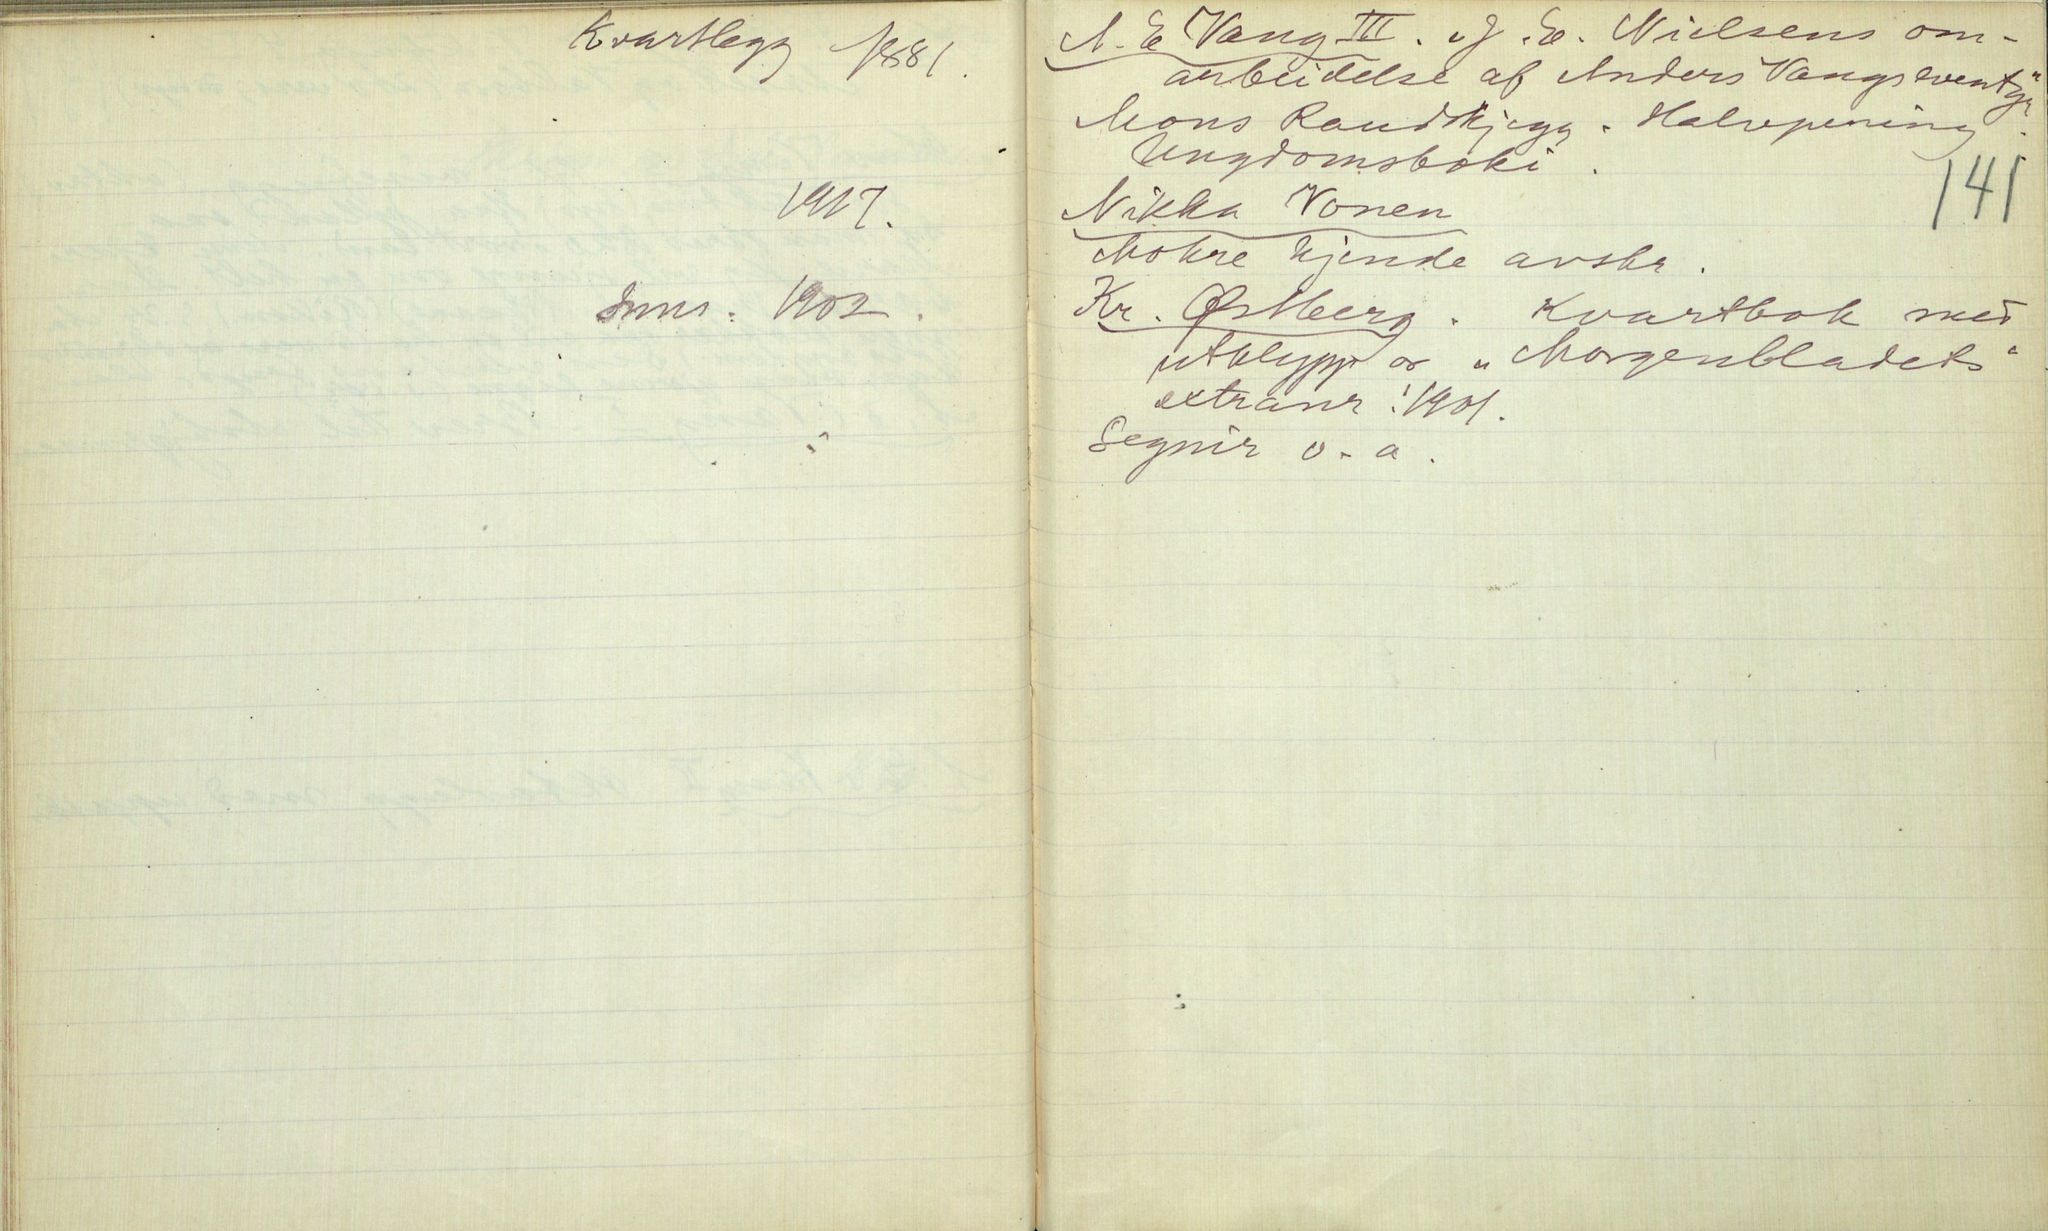 Kvartlegg 1881.
1917.
Inns. 1902.
A. E Vang III. „J. E. Nielsens om-
arbeidelse af Anders Vangs eventyr“
Mons Raudskjegg. Halvpening.
Ungdomsboki.
141
Nikka Vonen
Mokre kjende avskr.
Kr. Østberg. Kvartbok med
utklypp or „Morgenbladets“
extranr. 1901.
Segnir o. a.